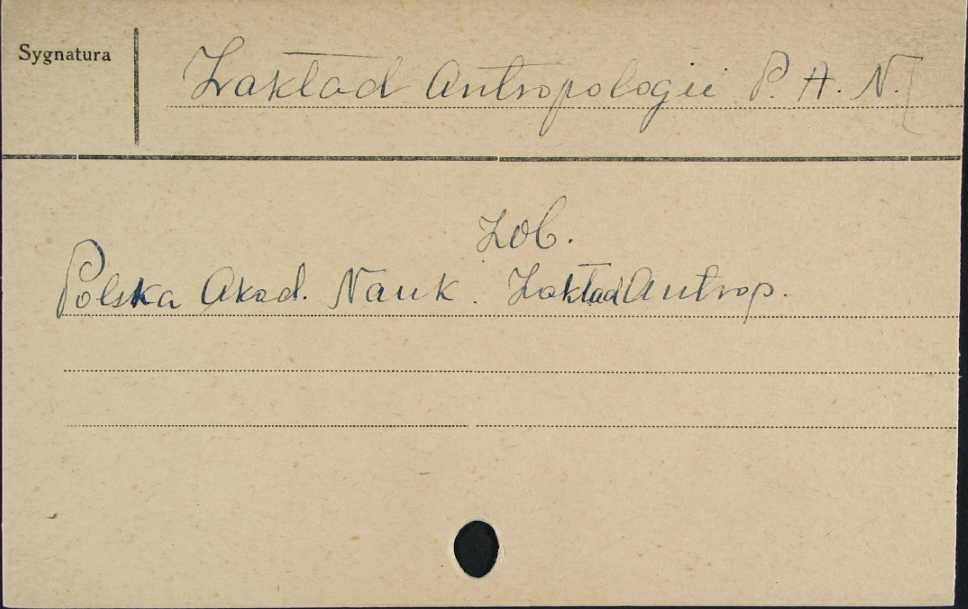 Sygnatura
Zakład Antropologii P. A. N.
Zob.
Polska Akad. Nauk. Zakład Antrop.